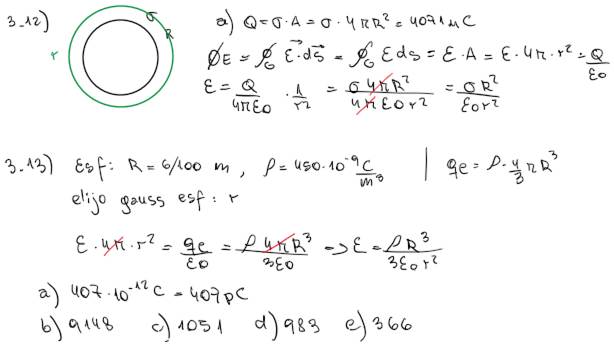 3.12) σ R r
a) Q = σ·A = σ·4πR² = 4071 μC
ϕE = ∮ E⃗·ds⃗ = ∮ E ds = E·A = E·4π·r² = Q/ε0
E = Q/4πε0 · 1/r² = σ4πR²/4πε0r² = σR²/ε0r²
3.13) Esf: R = 6/100 m, ρ = 450·10⁻⁹ C/m³ | qe = ρ·4/3πR³
elijo gauss esf: r
E·4π·r² = qe/ε0 = ρ4πR³/3ε0 → E = ρR³/3ε0r²
a) 407·10⁻¹² C = 407pC
b) 9148 c) 1051 d) 983 e) 366